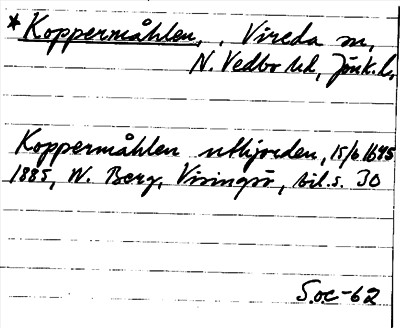 *Koppermåhlen, . Vireda sn,
N. Vedbo hd, Jönk. l.
Koppermåhlen uthjorden, 15/6 1645
1885, W. Berg, Visingsö, bil. s. 30
S.o.c-62